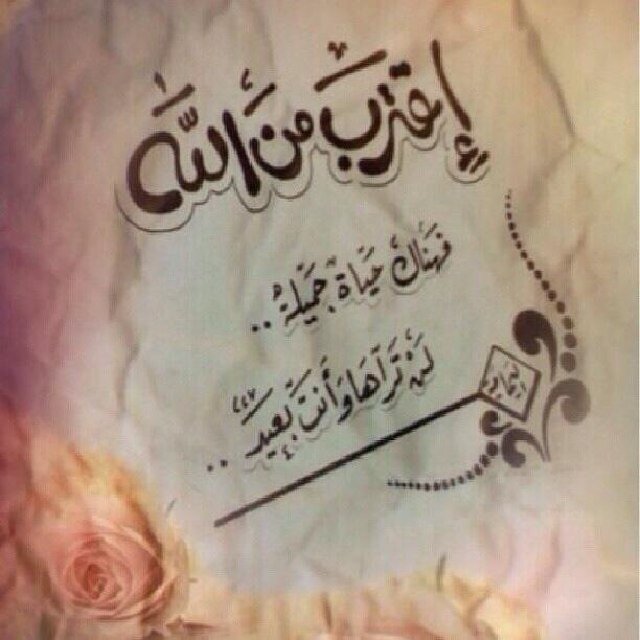 إقترَب منَ اللَّه
فهنَاكَ حيَاة جميَلة ..
لَنْ تَرَاهَا وَأَنتَ بَعِيدَ ..